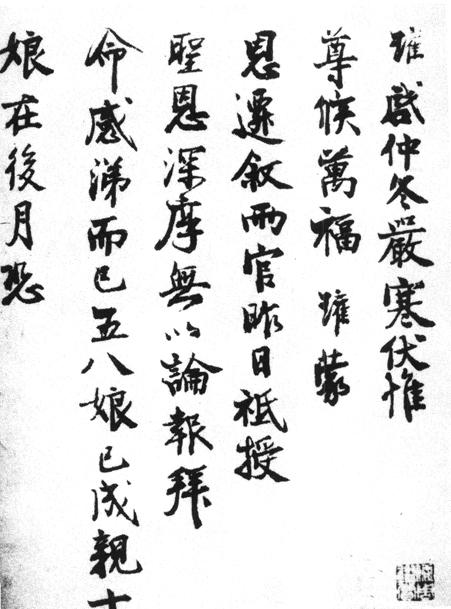 啟仲冬嚴寒伏惟
尊候萬福 蒙
恩遷敘兩官昨日祗授
聖恩深厚無以論報拜
命感涕而已五八娘已成親十
娘在後月恐